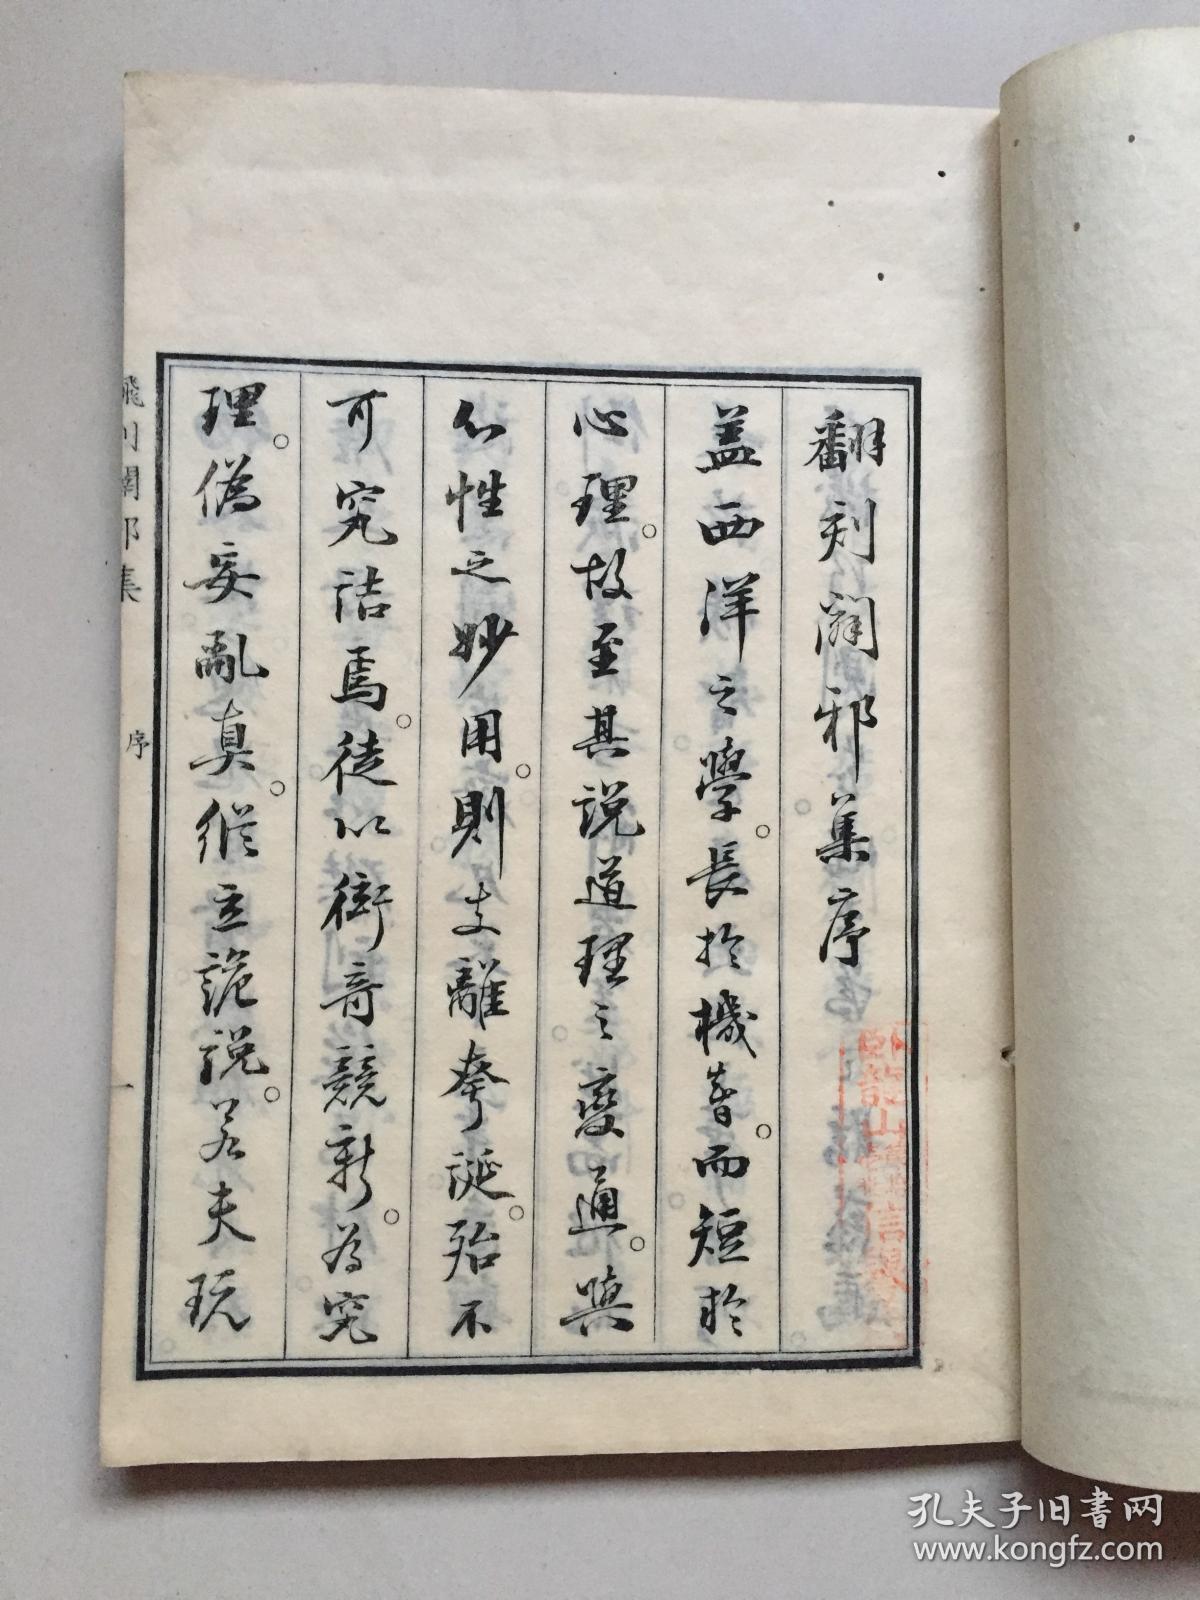 翻刻闢邪集序
蓋西洋之學。長於機智。而短於
心理。故至其説道理之變通。與
心性之妙用。則支離夸誕。殆不
可究詰焉。徒以衒奇競新。為究
理。偽妄亂真。縱立詭説。若夫玩
飜刻闢邪集 序 一
孔夫子旧书网
www.kongfz.com